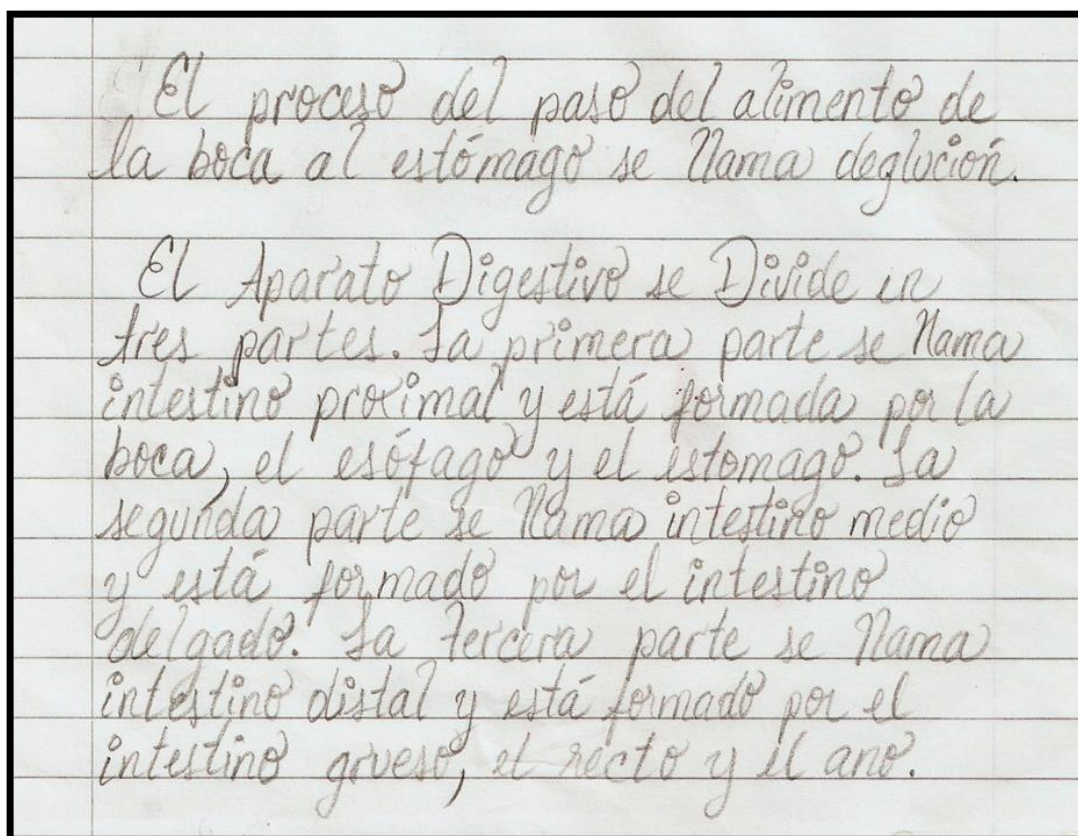 El proceso del paso del alimento de
la boca al estómago se llama deglución.
El Aparato Digestivo se Divide en
tres partes. La primera parte se llama
intestino proximal y está formada por la
boca, el esófago y el estomago. La
segunda parte se llama intestino medio
y está formado por el intestino
delgado. La tercera parte se llama
intestino distal y está formado por el
intestino grueso, el recto y el ano.